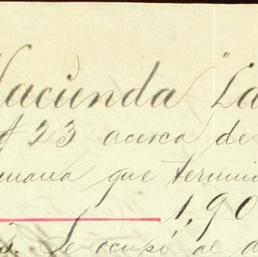 Hacienda "La
# 23 acerca de
semana que termin
1,90
Se ocupó al